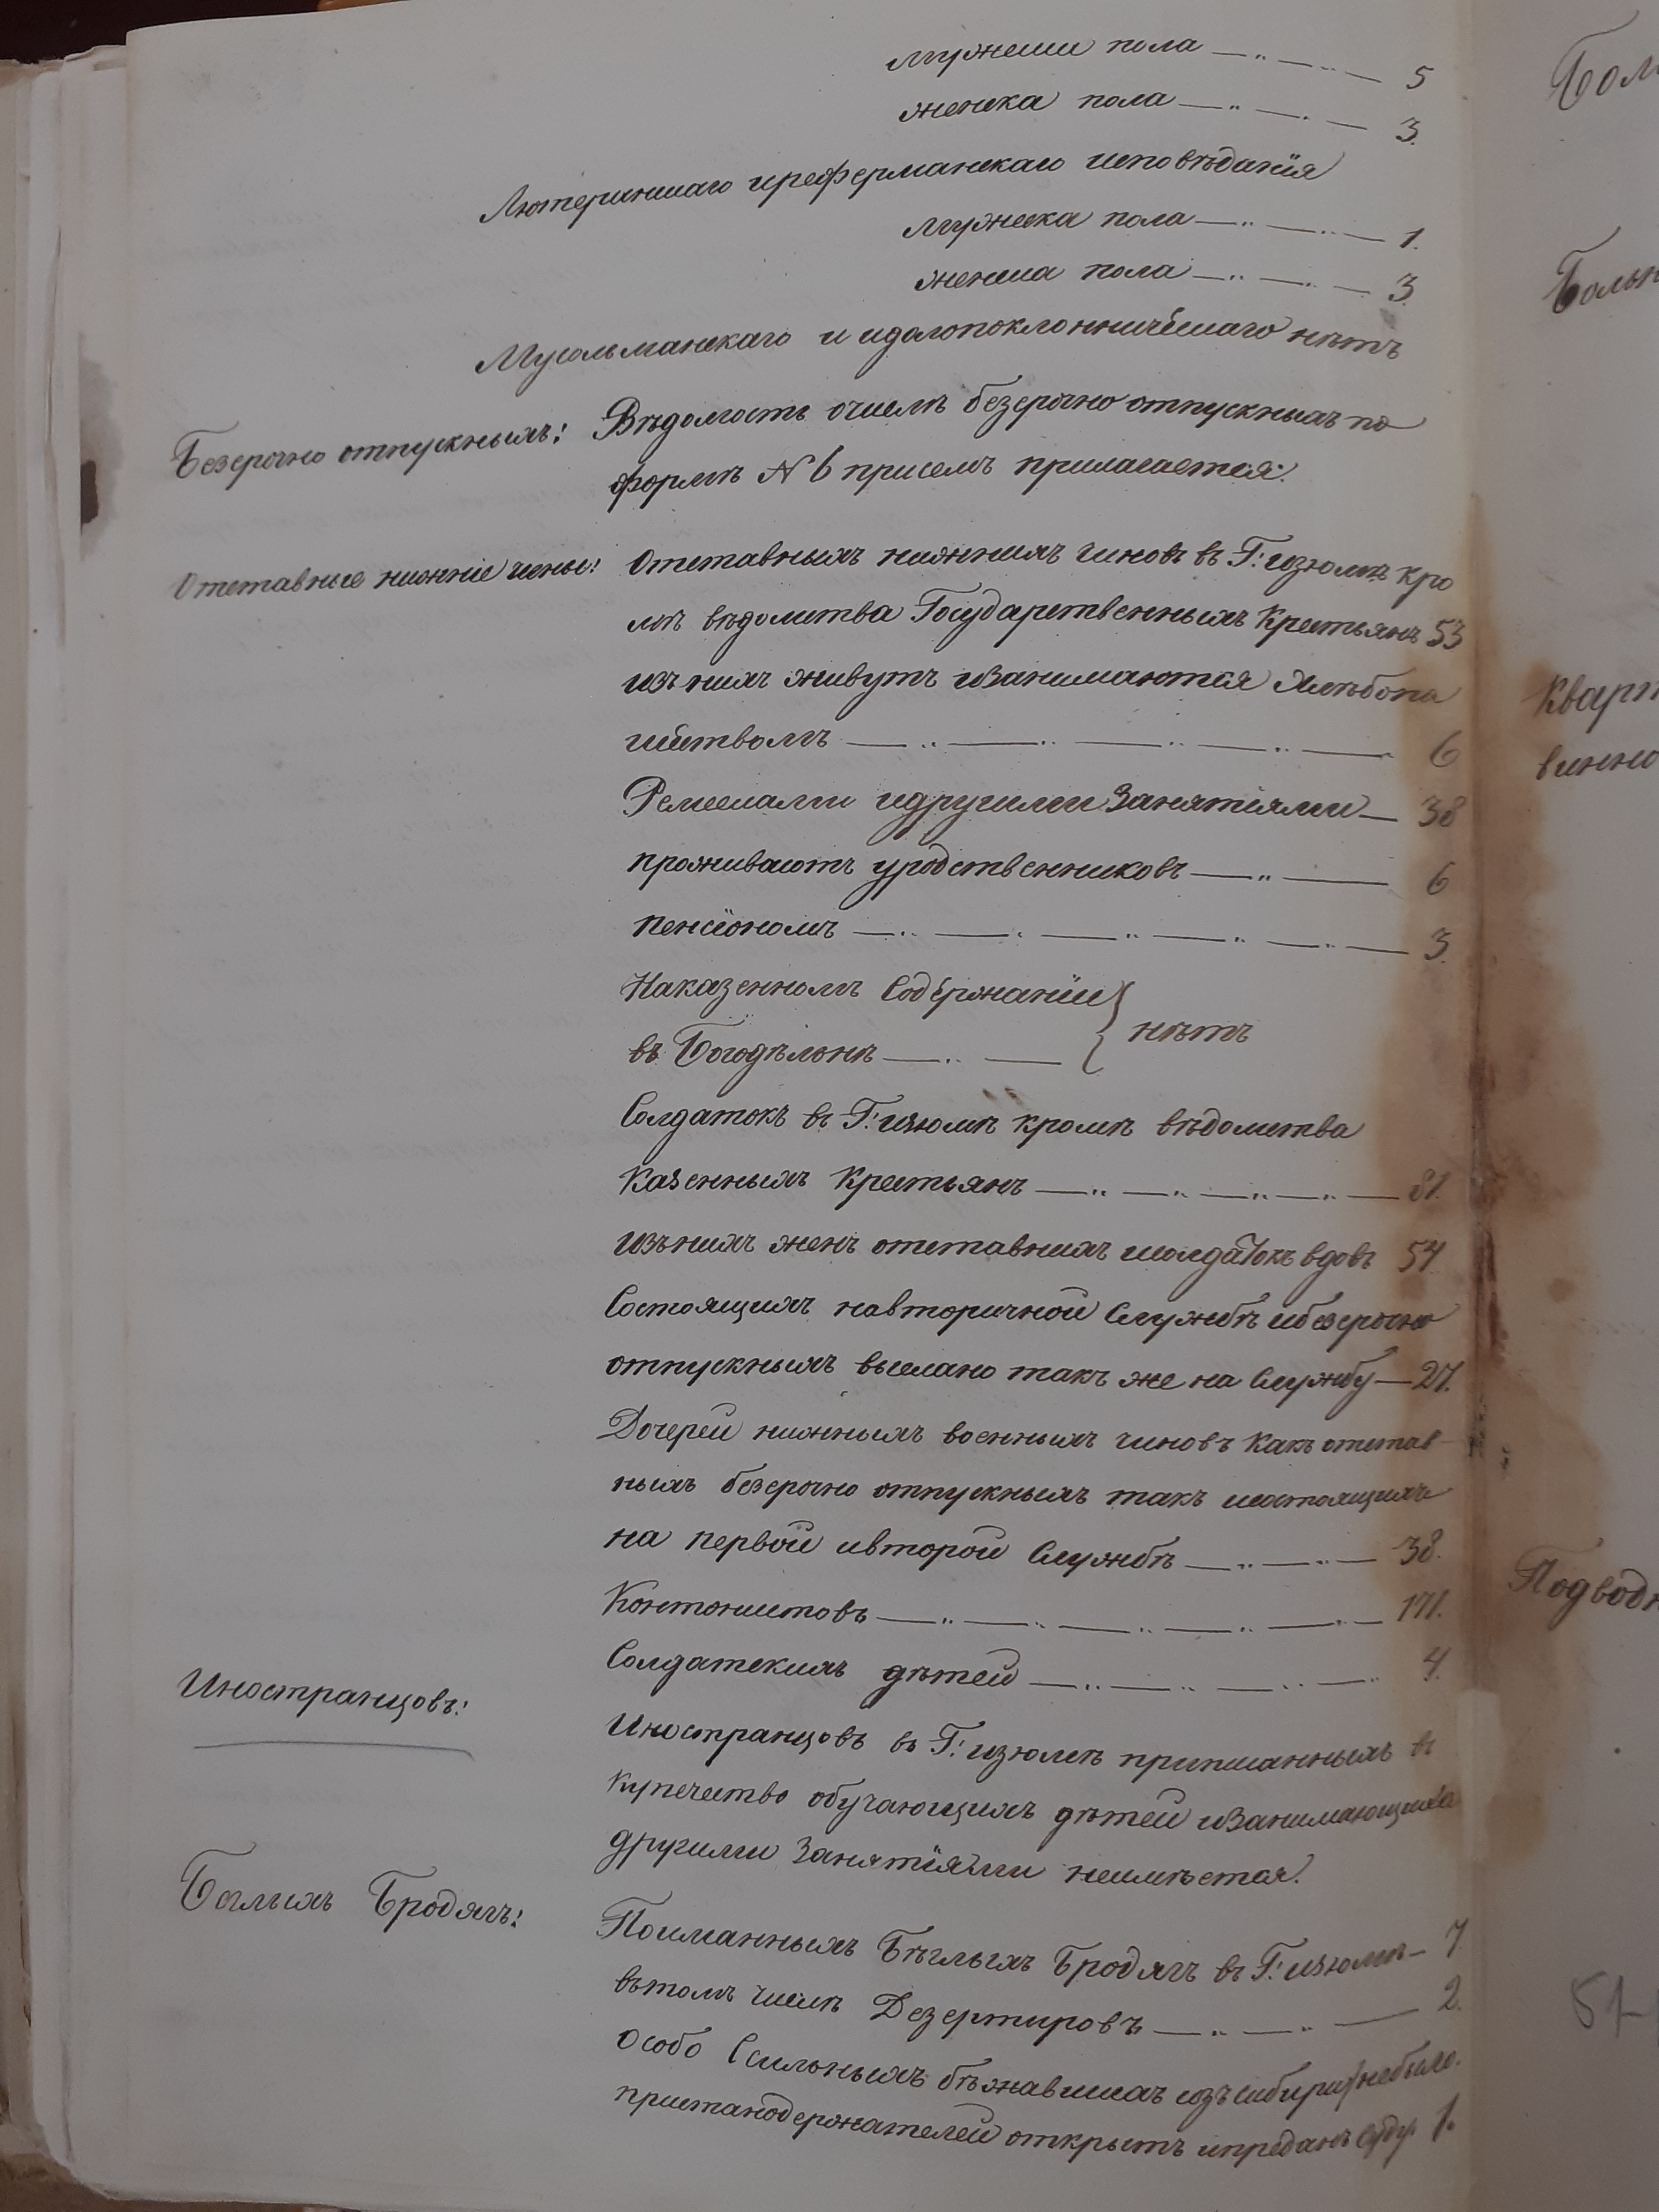 мужеска пола — „ — „ — 5
женска пола — „ — . — 3.
Лютеранскаго иреформанскаго исповѣданія
мужеска пола — „ — „ — 1.
женска пола — „ — „ — 3.
Мусольманскаго и идолопоклонническаго нѣтъ
Безсрочно отпускныхъ: Вѣдомость очислѣ безсрочно отпускныхъ по
формѣ № 6 присемъ прилагается.
Отставные нижніе чины: Отставныхъ нижнихъ чиновъ въ Г: изюмѣ кро
мѣ вѣдомства Государственныхъ Крестьянъ 53
изъ нихъ живутъ изанимаются Хлѣбопа
шествомъ — „ — „ — „ — „ — 6
Ремеслами идругими Занятіями — 38
проживаютъ уродственниковъ — „ — 6
пенсіономъ — „ — „ — „ — „ — „ — 3.
Наказенномъ Содержаніи
въ Богодѣльнѣ — „ — } нѣтъ
Солдатокъ въ Г: изюмѣ кромѣ вѣдомства
Казенныхъ Крестьянъ — „ — „ — „ — „ — 81.
изъ нихъ женъ отставныхъ исолдатокъ вдовъ 54
Состоящихъ навторичной Службѣ ибезсрочно
отпускныхъ выслано такъ же на Службу — 27.
Дочерей нижныхъ военныхъ чиновъ Какъ отстав
ныхъ безсрочно отпускныхъ такъ исостоящихъ
на первой ивторой Службѣ — „ — „ — 38.
Контонистовъ — „ — „ — „ — „ — „ — 171.
Солдатскихъ дѣтей — „ — „ — „ — „ 4.
Иностранцовъ: Иностранцовъ въ Г: изюмѣ приписанныхъ въ
Купечество обучающихъ дѣтей изанимающихся
другими Занятіями неимѣется.
Бѣглыхъ Бродягъ: Поиманныхъ Бѣглыхъ Бродягъ въ Г: изюмѣ — 7.
вътомъ числѣ Дезертировъ — „ — „ — 2.
особо Ссыльныхъ бѣжавшихъ изъ сибири небыло.
пристанодержателей открытъ ипреданъ Суду 1.
Больн
Кварт
винно
Подводн